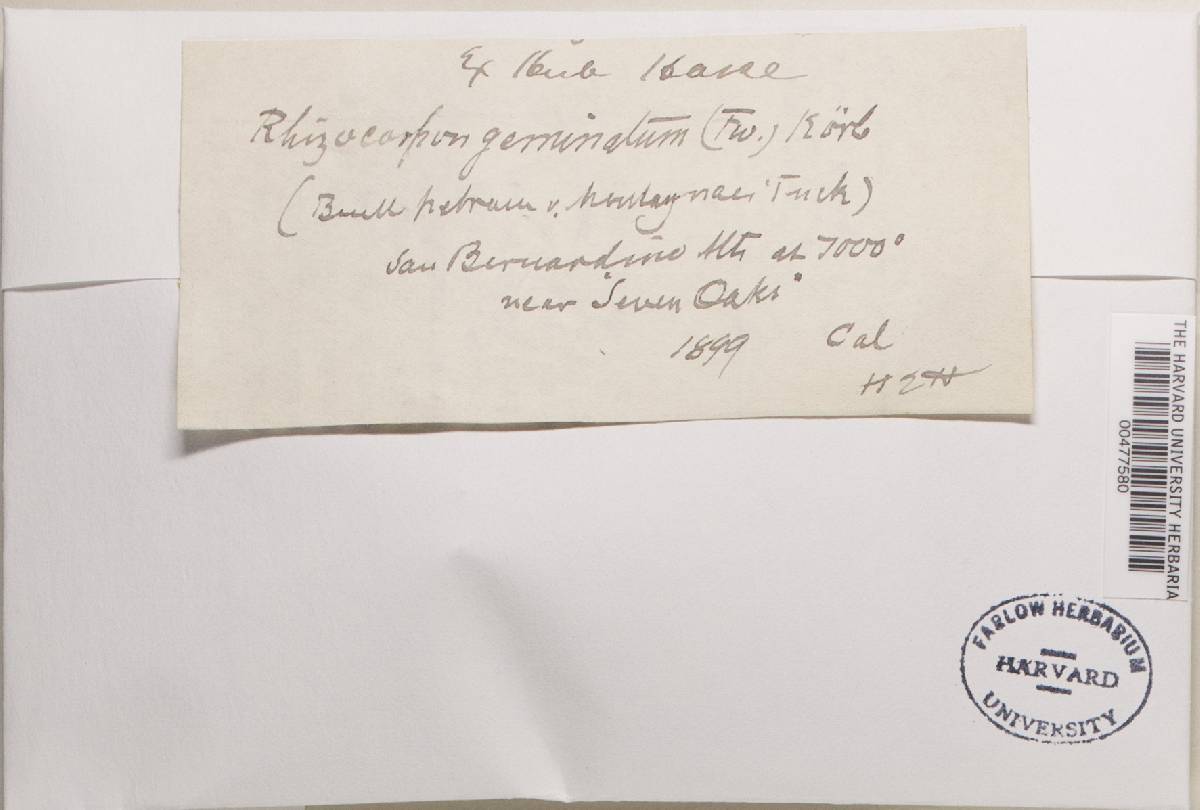 Ex Herb Hasse
Rhizocarpon geminatum (Fw.) Körb
(Buell petraea v. Montagnaei Tuck)
San Bernardino Mts at 7000°
near "Seven Oaks"
1899 Cal
THE HARVARD UNIVERSITY HERBARIA
00477580
FARLOW HERBARIUM
HARVARD
UNIVERSITY